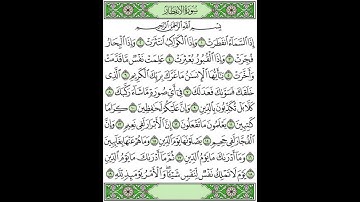 سورة الانفطار
بسم الله الرحمن الرحيم
إِذَا السَّمَاءُ انفَطَرَتْ ۝١ وَإِذَا الْكَوَاكِبُ انتَثَرَتْ ۝٢ وَإِذَا الْبِحَارُ
فُجِّرَتْ ۝٣ وَإِذَا الْقُبُورُ بُعْثِرَتْ ۝٤ عَلِمَتْ نَفْسٌ مَّا قَدَّمَتْ
وَأَخَّرَتْ ۝٥ يَا أَيُّهَا الْإِنسَانُ مَا غَرَّكَ بِرَبِّكَ الْكَرِيمِ ۝٦ الَّذِي
خَلَقَكَ فَسَوَّاكَ فَعَدَلَكَ ۝٧ فِي أَيِّ صُورَةٍ مَّا شَاءَ رَكَّبَكَ ۝٨
كَلَّا بَلْ تُكَذِّبُونَ بِالدِّينِ ۝٩ وَإِنَّ عَلَيْكُمْ لَحَافِظِينَ ۝١٠ كِرَامًا
كَاتِبِينَ ۝١١ يَعْلَمُونَ مَا تَفْعَلُونَ ۝١٢ إِنَّ الْأَبْرَارَ لَفِي نَعِيمٍ ۝١٣ وَإِنَّ
الْفُجَّارَ لَفِي جَحِيمٍ ۝١٤ يَصْلَوْنَهَا يَوْمَ الدِّينِ ۝١٥ وَمَا هُمْ عَنْهَا بِغَائِبِينَ ۝١٦
وَمَا أَدْرَاكَ مَا يَوْمُ الدِّينِ ۝١٧ ثُمَّ مَا أَدْرَاكَ مَا يَوْمُ الدِّينِ ۝١٨
يَوْمَ لَا تَمْلِكُ نَفْسٌ لِّنَفْسٍ شَيْئًا وَالْأَمْرُ يَوْمَئِذٍ لِّلَّهِ ۝١٩